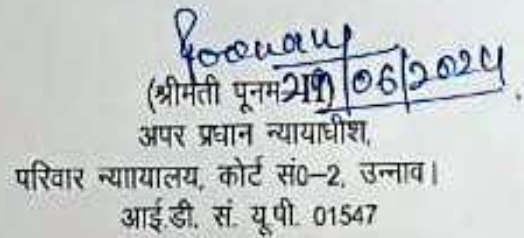 Poonam
(श्रीमती पूनम /06/2024
अपर प्रधान न्यायाधीश,
परिवार न्याायालय, कोर्ट सं0–2, उन्नाव।
आई.डी. सं. यू.पी. 01547